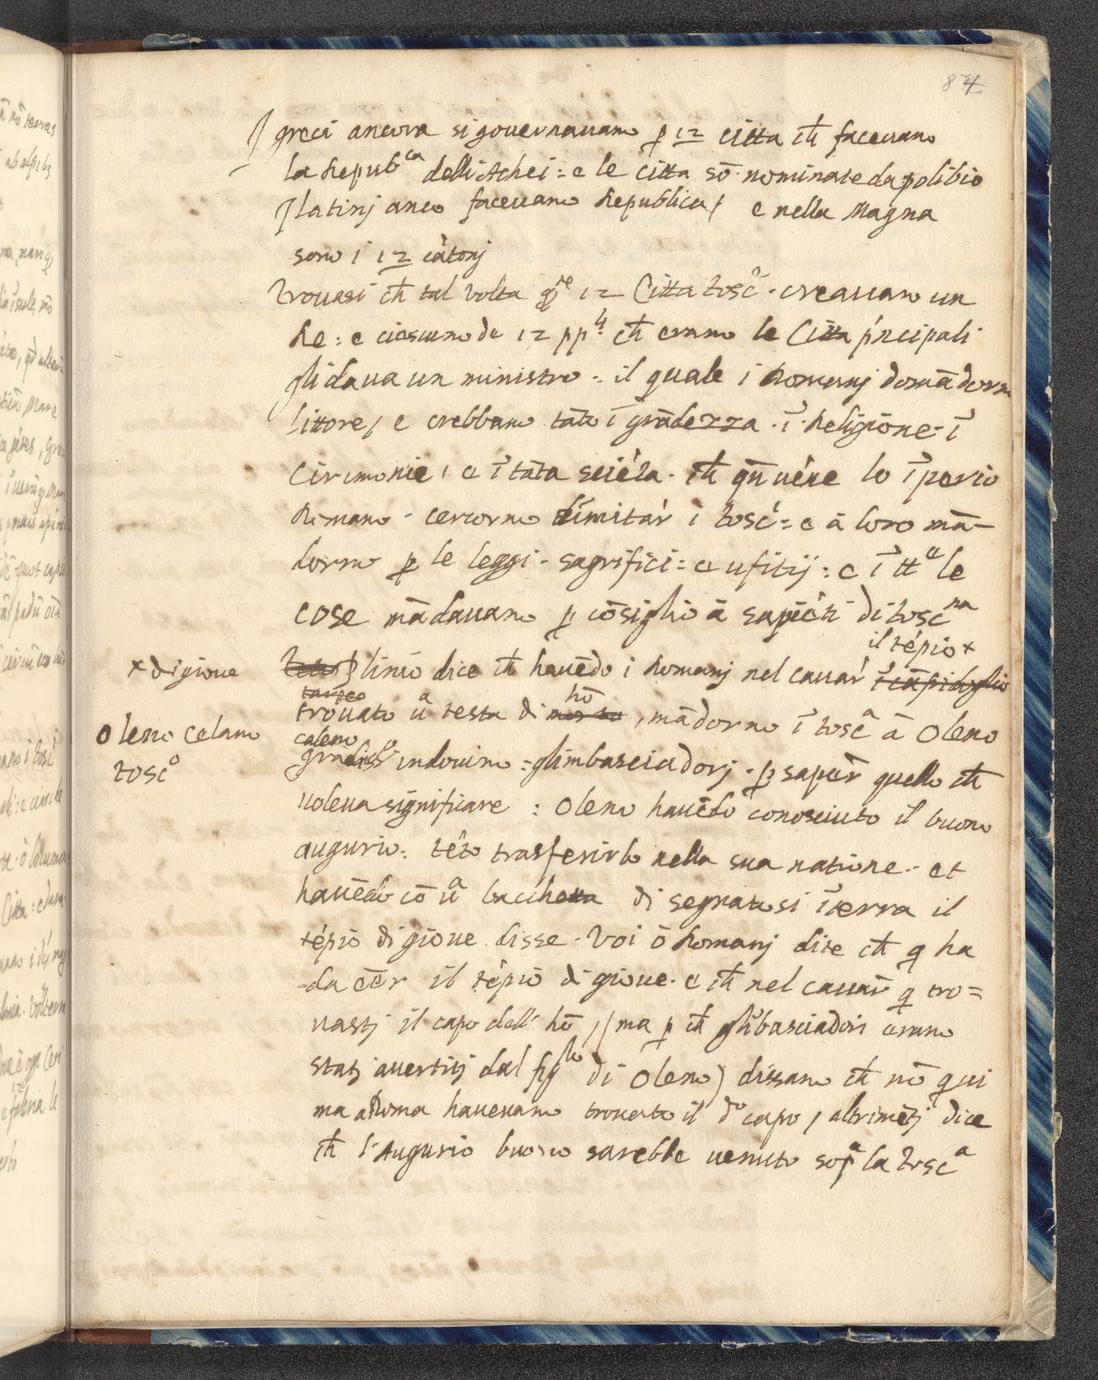 84
J greci ancora si gouernauano p̱ 12 citta ch̄ faceuano
la Repub.ca delli Achei : e le citta sō nominate da polibio
J latinj anco faceuano Republica / e nella Magna
sono i 12 cātonj
trouasi ch̄ tal volta q̄ste 12 Citta tosc.e creauano un
Re : e ciascuno de 12 pp.li ch̄ erano le Citta ṕncipali
gli daua un ministro : il quale i Romanj domādorno
littore / e crebbano tāto ī grādezza ī Religione ī
Cirimonie / e ī tāta sciēza ch̄ qn̄ uēne lo īperio
Romano cercorno dimitar i tosc̄ : e ā loro mā-
dorno p̱ le leggi sagrifici : e ufitij : e ī tt.e le
cose mādauano p̱ cōsiglio ā sapiēti di tosc.na
il tēpio x
x di gioue
plinio dice ch̄ hauēdo i Romanj nel cauar ī cāpidoglio
tarpeo
hō
trouato ū.a testa di morto , mādorno ī tosc.a ā Oleno
Oleno Celano
tosc.o
caleno
grādiss.o indouino : glimbasciadorj p̱ saper quello ch̄
uoleua significare : Oleno hauēdo conosciuto il buono
augurio : tētò trasferirlo nella sua natione et
hauēdo cō ū.a bacchetta disegnatosi ī terra il
tēpio di gioue disse Voi ō Romanj dite ch̄ q̄ ha
da eēr il tēpio di gioue e ch̄ nel cauar q̄ tro=
uastj il capo dell' hō / (ma p̱ ch̄ glībasciadori erano
statj auertitj dal fig.lo di Oleno) dissano ch̄ nō qui
ma a Roma haueuano trouato il d.o capo / altrimētj dice
ch̄ l'Augurio buono sarebbe uenuto sop.a la tosc.a